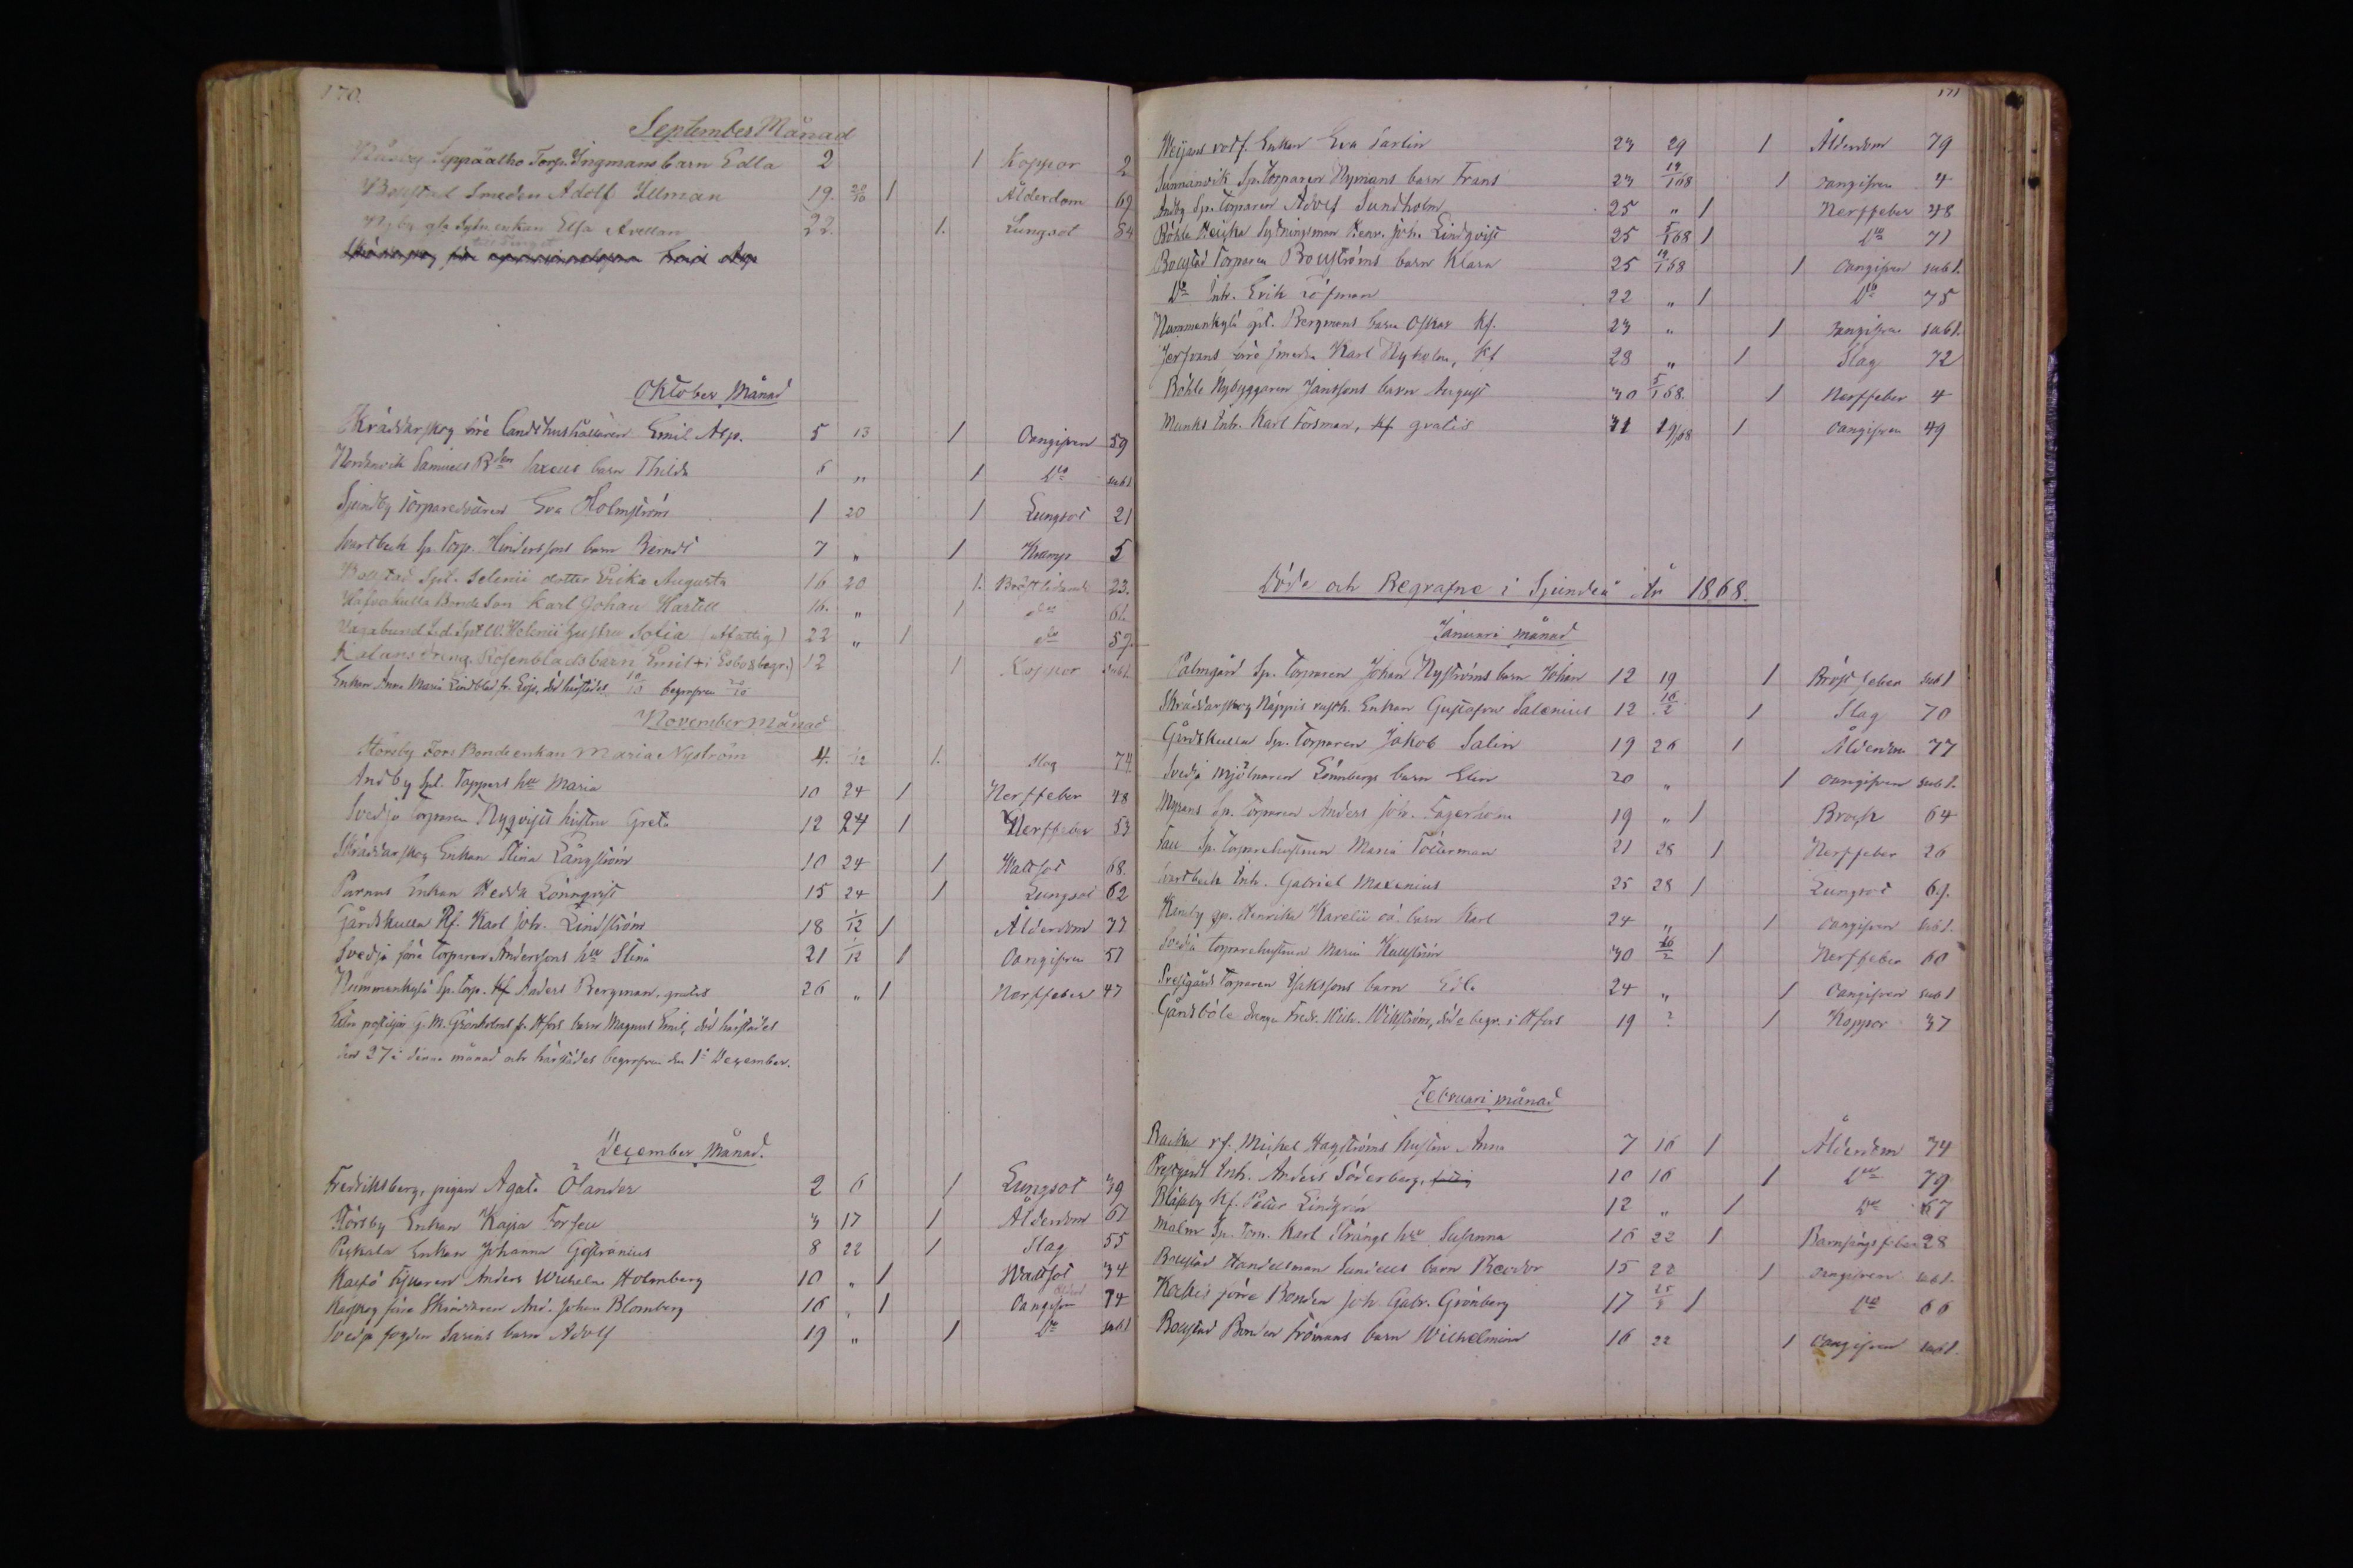 170.
September Månad
Seppäälho Torp. Ingmans barn Edla 2 1 Koppor 2
Bollstad Smeden Adolf Ullman 19. 20/10 1 Ålderdom 69
enkan Elsa Avellan 22. 1. Lungsot 54
Oktober Månad
Skräddarskog Landthushållaren Emil Asp. 5 13 1 Oangifven 59
Nordanvik Samuels barn Thilda 6 " 1 D:o sub 1
Sjundby Torparedottren Eva Holmström 1 20 1 Lungsot 21
Svartbeck Sp. Torp. Hinderssons barn Berndt 7 " 1 Kramp 5
Bollstad Spt. Selenii dotter Erika Augusta 16 20 1. Bröstlidande 23.
Bonde Son Karl Johan Hartell 16. " 1 d:o 61.
Vagabund Sotia (Afattig) 22 " 1 d:o 59.
dreng. Rosenblads barn Emil + i Esbo & begr.) 12 1 Koppor sub 1.
Enkan Anna Maria Lindblad fr. död härstädes 10/10 begrafven 20/10
November månad
Störsby Fors Bondeenkan Maria Nyström 4. 1/12 1. Slag 74.
Andby Spt. Toppars h:u Maria 10 24 1 Nerffeber 48
Svedja Torparen Nyqvists hustru Greta 12 24 1 Nerffeber 53
Skräddarskog Enkan Stina Långström 10 24 1 Wattsot 68.
Parnus Enkan Hedda Lönnqvist 15 24 1 Lungsot 62
Gårdskulla Rf. Karl Joh. Lindström 18 1/12 1 Ålderdom 73
Svedja förre Torparen Anderssons h:u Stina 21 1/12 1 Oangifven 57
Nummenkylä Sp. Torp. Kf Anders Bergman, gratis 26 " 1 Nerffeber 47
postiljon G. M. Grönholms fr. Hfors barn Magnus Emil, död härstädes
den 27 i denna månad och härstädes begrafven den 1 December.
December Månad.
Fredriksberg, pigan Agata Ölander 2 6 1 Lungsot 39
Störsby Enkan Kajsa Forsell 3 17 1 Ålderdom 67
Pickala Enkan Johanna Gestranius 8 22 1 Slag 55
Fiskaren Anders Wilhelm Holmberg 10 " 1 Wattsot 34
förre Skräddaren And. Johan Blomberg 16 " 1 Oangifven 74
Svedja fogden Sarins barn Adolf 19 " 1 D:o sub 1
171
Enkan Eva Carlin 23 29 1 Ålderdom 79
Sunnanvik Sp. Torparen Nymans barn Frans 23 19/1 68 1 oangifven 4
Andby Sp. Torparen Adolf Sundholm 25 " 1 Nerffeber 48
Böhle Heikka Sytningsman Henr. Joh. Lindqvist 25 5/1 68 1 D:o 71
Bollstad Torparen Bollströms barn Klara 25 19/1 68 1 Oangifven sub 1.
D:o Inh. Erik Löfman 22 " 1 D:o 75
Nummenkylä spt. Bergmans barn Oskar Kf. 23 " 1 oangifven sub 1.
förre smeden Karl Nyholm, Kf 28 " 1 Slag 72
Böhle Nybyggaren Janssons barn August 30 5/1 68 1 Nerffeber 4
Munks Inh. Karl Forsman, Kf gratis 31 19/1 68 1 oangifven 49
Döde och Begrafne i Sjundeå År 1868.
Januari månad
Palmgård Sp. Torparen Johan Nyströms barn Johan 12 19 1 Bröst feber sub 1
Skräddarskog Näppis Enkan Gustafva Salenius 12 16/2 1 Slag 70
Gårdskulla Sp. Torparen Jakob Salin 19 26 1 Ålderdom 77
Svedja Mjölnaren Lönnbergs barn Elin 20 " 1 oangifven sub 1.
Myrans Sp. Torparen Anders Joh. Fagerholm 19 " 1 Bråck 64
Sp. Torparehustrun Maria Tötterman 21 28 1 Nerffeber 26
Svartbeck Inh. Gabriel Maxenius 25 28 1 Lungsot 61.
Henrika Karelii oä. barn Karl 24 " 1 oangifven sub 1.
Svedja Torparehustrun Maria Kullström 30 16/2 1 Nerffeber 60
Prestgårds Torparen Isakssons barn Edla 24 " 1 Oangifven sub 1
Gårdsböle drengen Fredr. Wilh. Willström, död & begr. i Hfors 19 ? 1 Koppor 37
Februari månad
Backa rf. Mickel Hagströms hustru Anna 7 16 1 Ålderdom 74
Prestgårds Inh. Anders Söderberg, 10 16 1 D:o 79
Kf. Petter Lindgren 12 " 1 D:o 67
Malm Sp. Torp. Karl Strångs h:u Susanna 16 22 1 Barnsängsfeber 28
Bollstad Handelsman Sundells barn Theodor 15 22 1 oangifven sub 1.
Kockis förre Bonden Joh. Gabr. Grönberg 17 25/2 1 D:o 66
Bollstad Bonden Frömans barn Wilhelmina 16 22 1 oangifven sub 1.